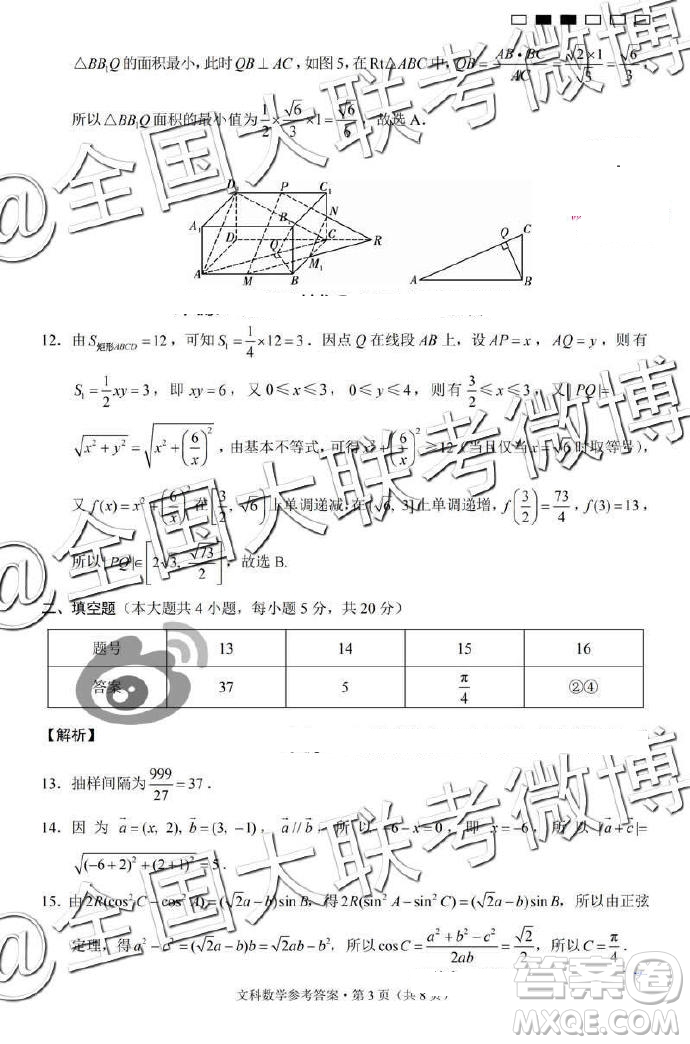 △BB₁Q的面积最小，此时QB⊥AC，如图5，在Rt△ABC中，QB=AB·BC/AC=(√2×1)/√3=√6/3，
所以△BB₁Q面积的最小值为1/2×√6/3×1=√6/6，故选A．
D₁ P C₁
A₁ B₁ N
D Q C R
M₁
A M B
Q C
A B
12．由S矩形ABCD=12，可知S₁=1/4×12=3．因点Q在线段AB上，设AP=x，AQ=y，则有
S₁=1/2xy=3，即xy=6，又0≤x≤3，0≤y≤4，则有3/2≤x≤3，又|PQ|=
√(x²+y²)=√(x²+(6/x)²)，由基本不等式，可得x²+(6/x)²≥12（当且仅当x=√6时取等号），
又f(x)=x²+(6/x)²在[3/2, √6)上单调递减，在(√6, 3]上单调递增，f(3/2)=73/4，f(3)=13，
所以|PQ|∈[2√3, √73/2]，故选B.
二、填空题（本大题共4小题，每小题5分，共20分）
题号 13 14 15 16
答案 37 5 π/4 ②④
【解析】
13．抽样间隔为999/27=37．
14．因为a⃗=(x, 2), b⃗=(3, -1)，a⃗//b⃗，所以-6-x=0，即x=-6，所以|a⃗+c⃗|=
√((-6+2)²+(2+1)²)=5．
15．由2R(cos²C-cos²A)=(√2a-b)sinB，得2R(sin²A-sin²C)=(√2a-b)sinB，所以由正弦
定理，得a²-c²=(√2a-b)b=√2ab-b²，所以cosC=(a²+b²-c²)/2ab=√2/2，所以C=π/4．
文科数学参考答案·第3页（共8页）
@全国大联考微博
@全国大联考微博
@全国大联考微博
答案圈
MXQE.COM